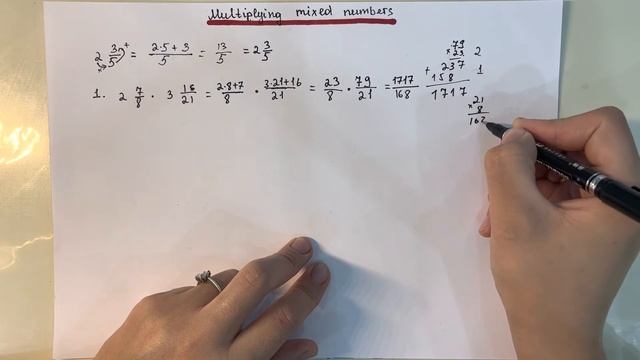 Multiplying mixed numbers
2 3/5 + = (2·5+3)/5 = 13/5 = 2 3/5
1. 2 7/8 · 3 16/21 = (2·8+7)/8 · (3·21+16)/21 = 23/8 · 79/21 = 1717/168
79
× 23
2
+ 237
1
158
1717
× 21
8
162